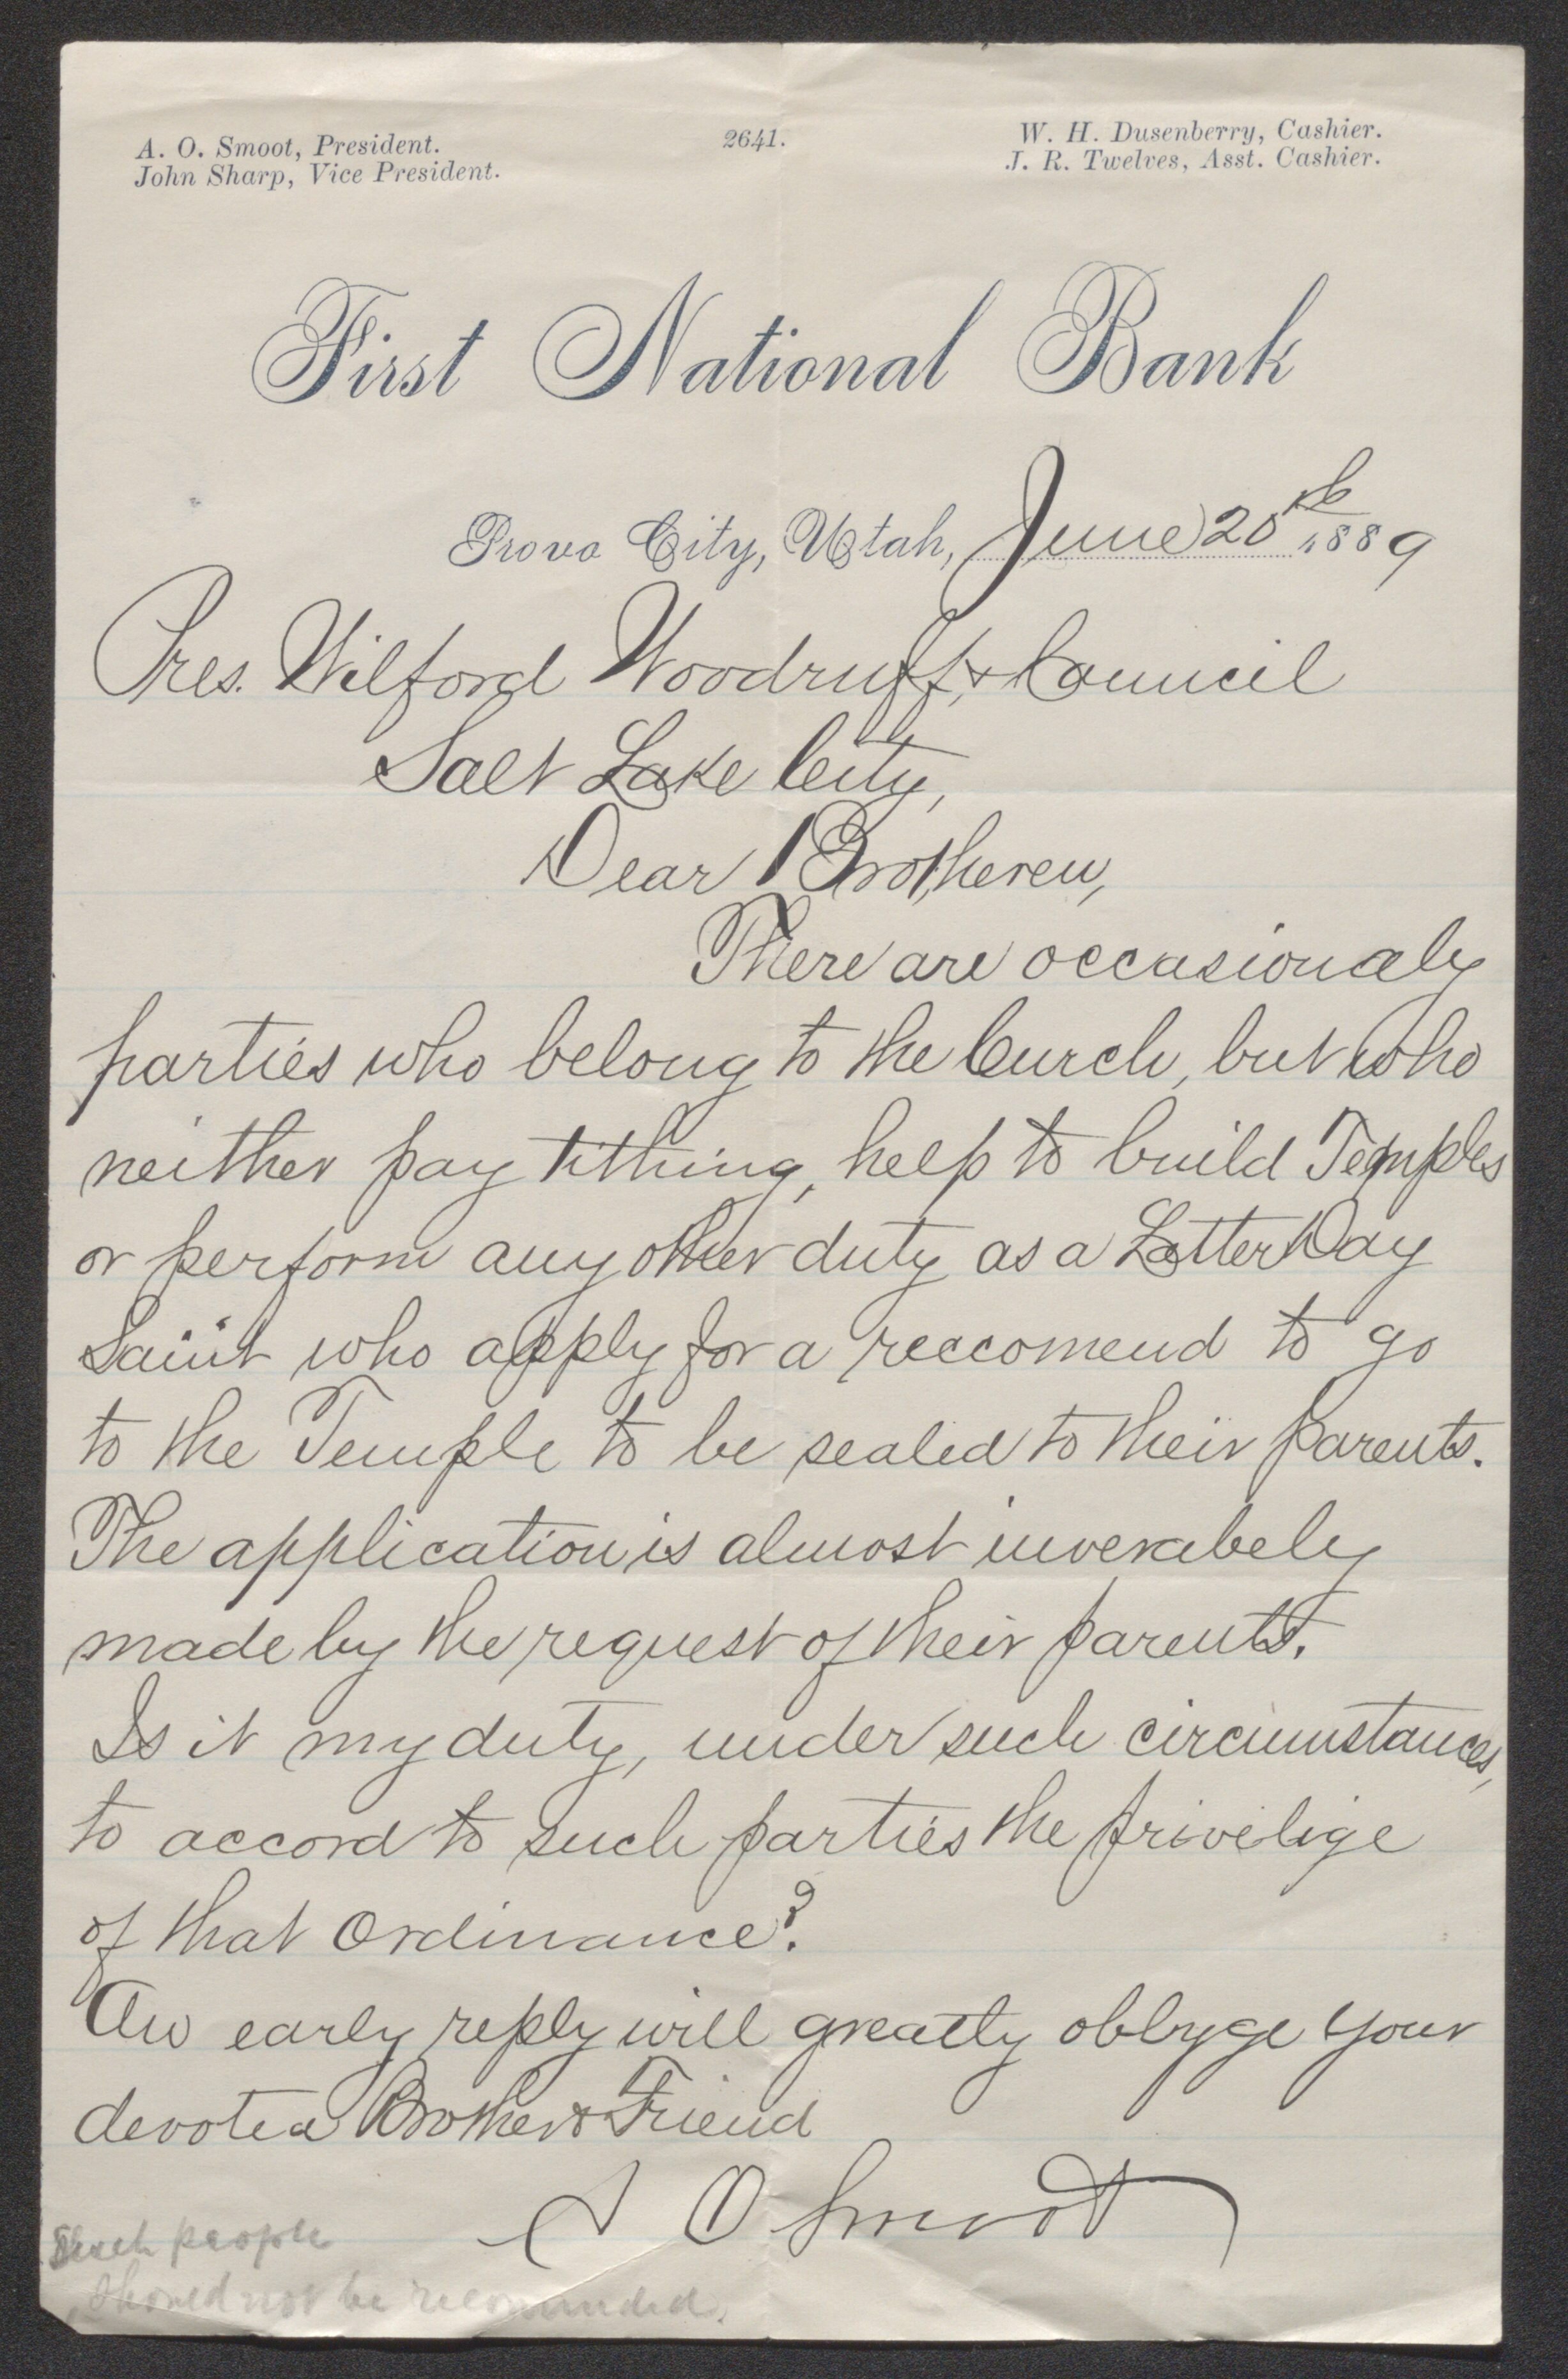 A. O. Smoot, President.
John Sharp, Vice President.
2641.
W. H. Dusenberry, Cashier.
J. R. Twelves, Asst. Cashier.
First National Bank
Provo City, Utah, June 20th 1889
Pres. Wilford Woodruff, & Council
Salt Lake City,
Dear Brotheren,
There are occasionaly
parties who belong to the Curch, but who
neither pay tithing, help to build Temples
or perform any other duty as a Latter Day
Saint who apply for a reccomend to go
to the Temple to be sealed to their parents.
The application is almost inverabely
made by the request of their parents.
Is it my duty, under such circumstances,
to accord to such parties the privelige
of that Ordinance?
An early reply will greatly oblyge your
devoted Brother & Friend
A O Smoot
Such people
should not be recomended.